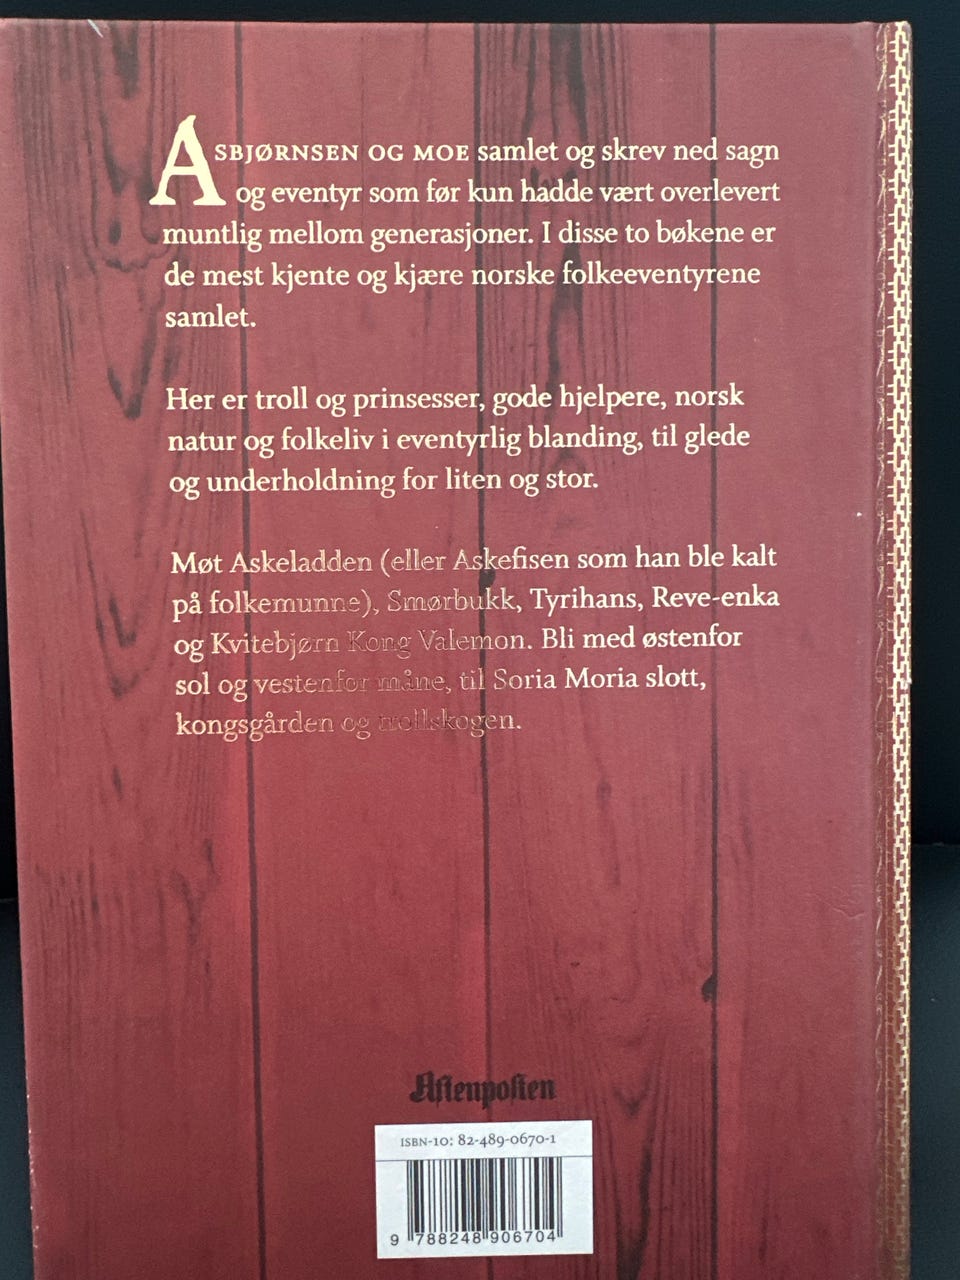 ASBJØRNSEN OG MOE samlet og skrev ned sagn
og eventyr som før kun hadde vært overlevert
muntlig mellom generasjoner. I disse to bøkene er
de mest kjente og kjære norske folkeeventyrene
samlet.
Her er troll og prinsesser, gode hjelpere, norsk
natur og folkeliv i eventyrlig blanding, til glede
og underholdning for liten og stor.
Møt Askeladden (eller Askefisen som han ble kalt
på folkemunne), Smørbukk, Tyrihans, Reve-enka
og Kvitebjørn Kong Valemon. Bli med østenfor
sol og vestenfor måne, til Soria Moria slott,
kongsgården og trollskogen.
Aftenposten
ISBN-10: 82-489-0670-1
9 788248 906704